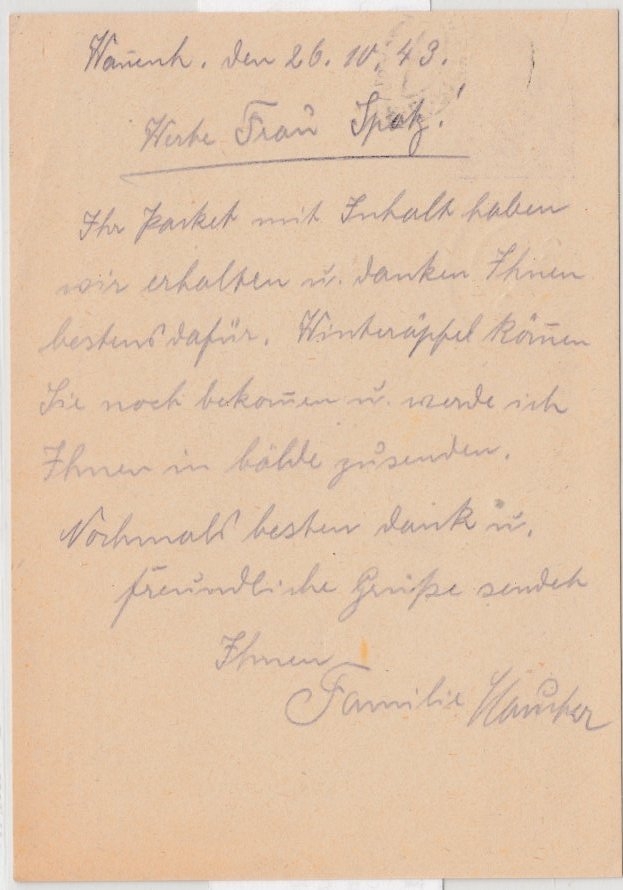 den 26. 10. 43.
Werte Frau Spatz!
Ihr Packet mit Inhalt haben
wir erhalten u. danken Ihnen
bestens dafür. Winteräpfel kön̄en
Sie noch bekom̄en u. werde ich
Ihnen in bälde zusenden.
Nochmals besten dank u.
freundliche Grüße sendet
Ihnen
Familie